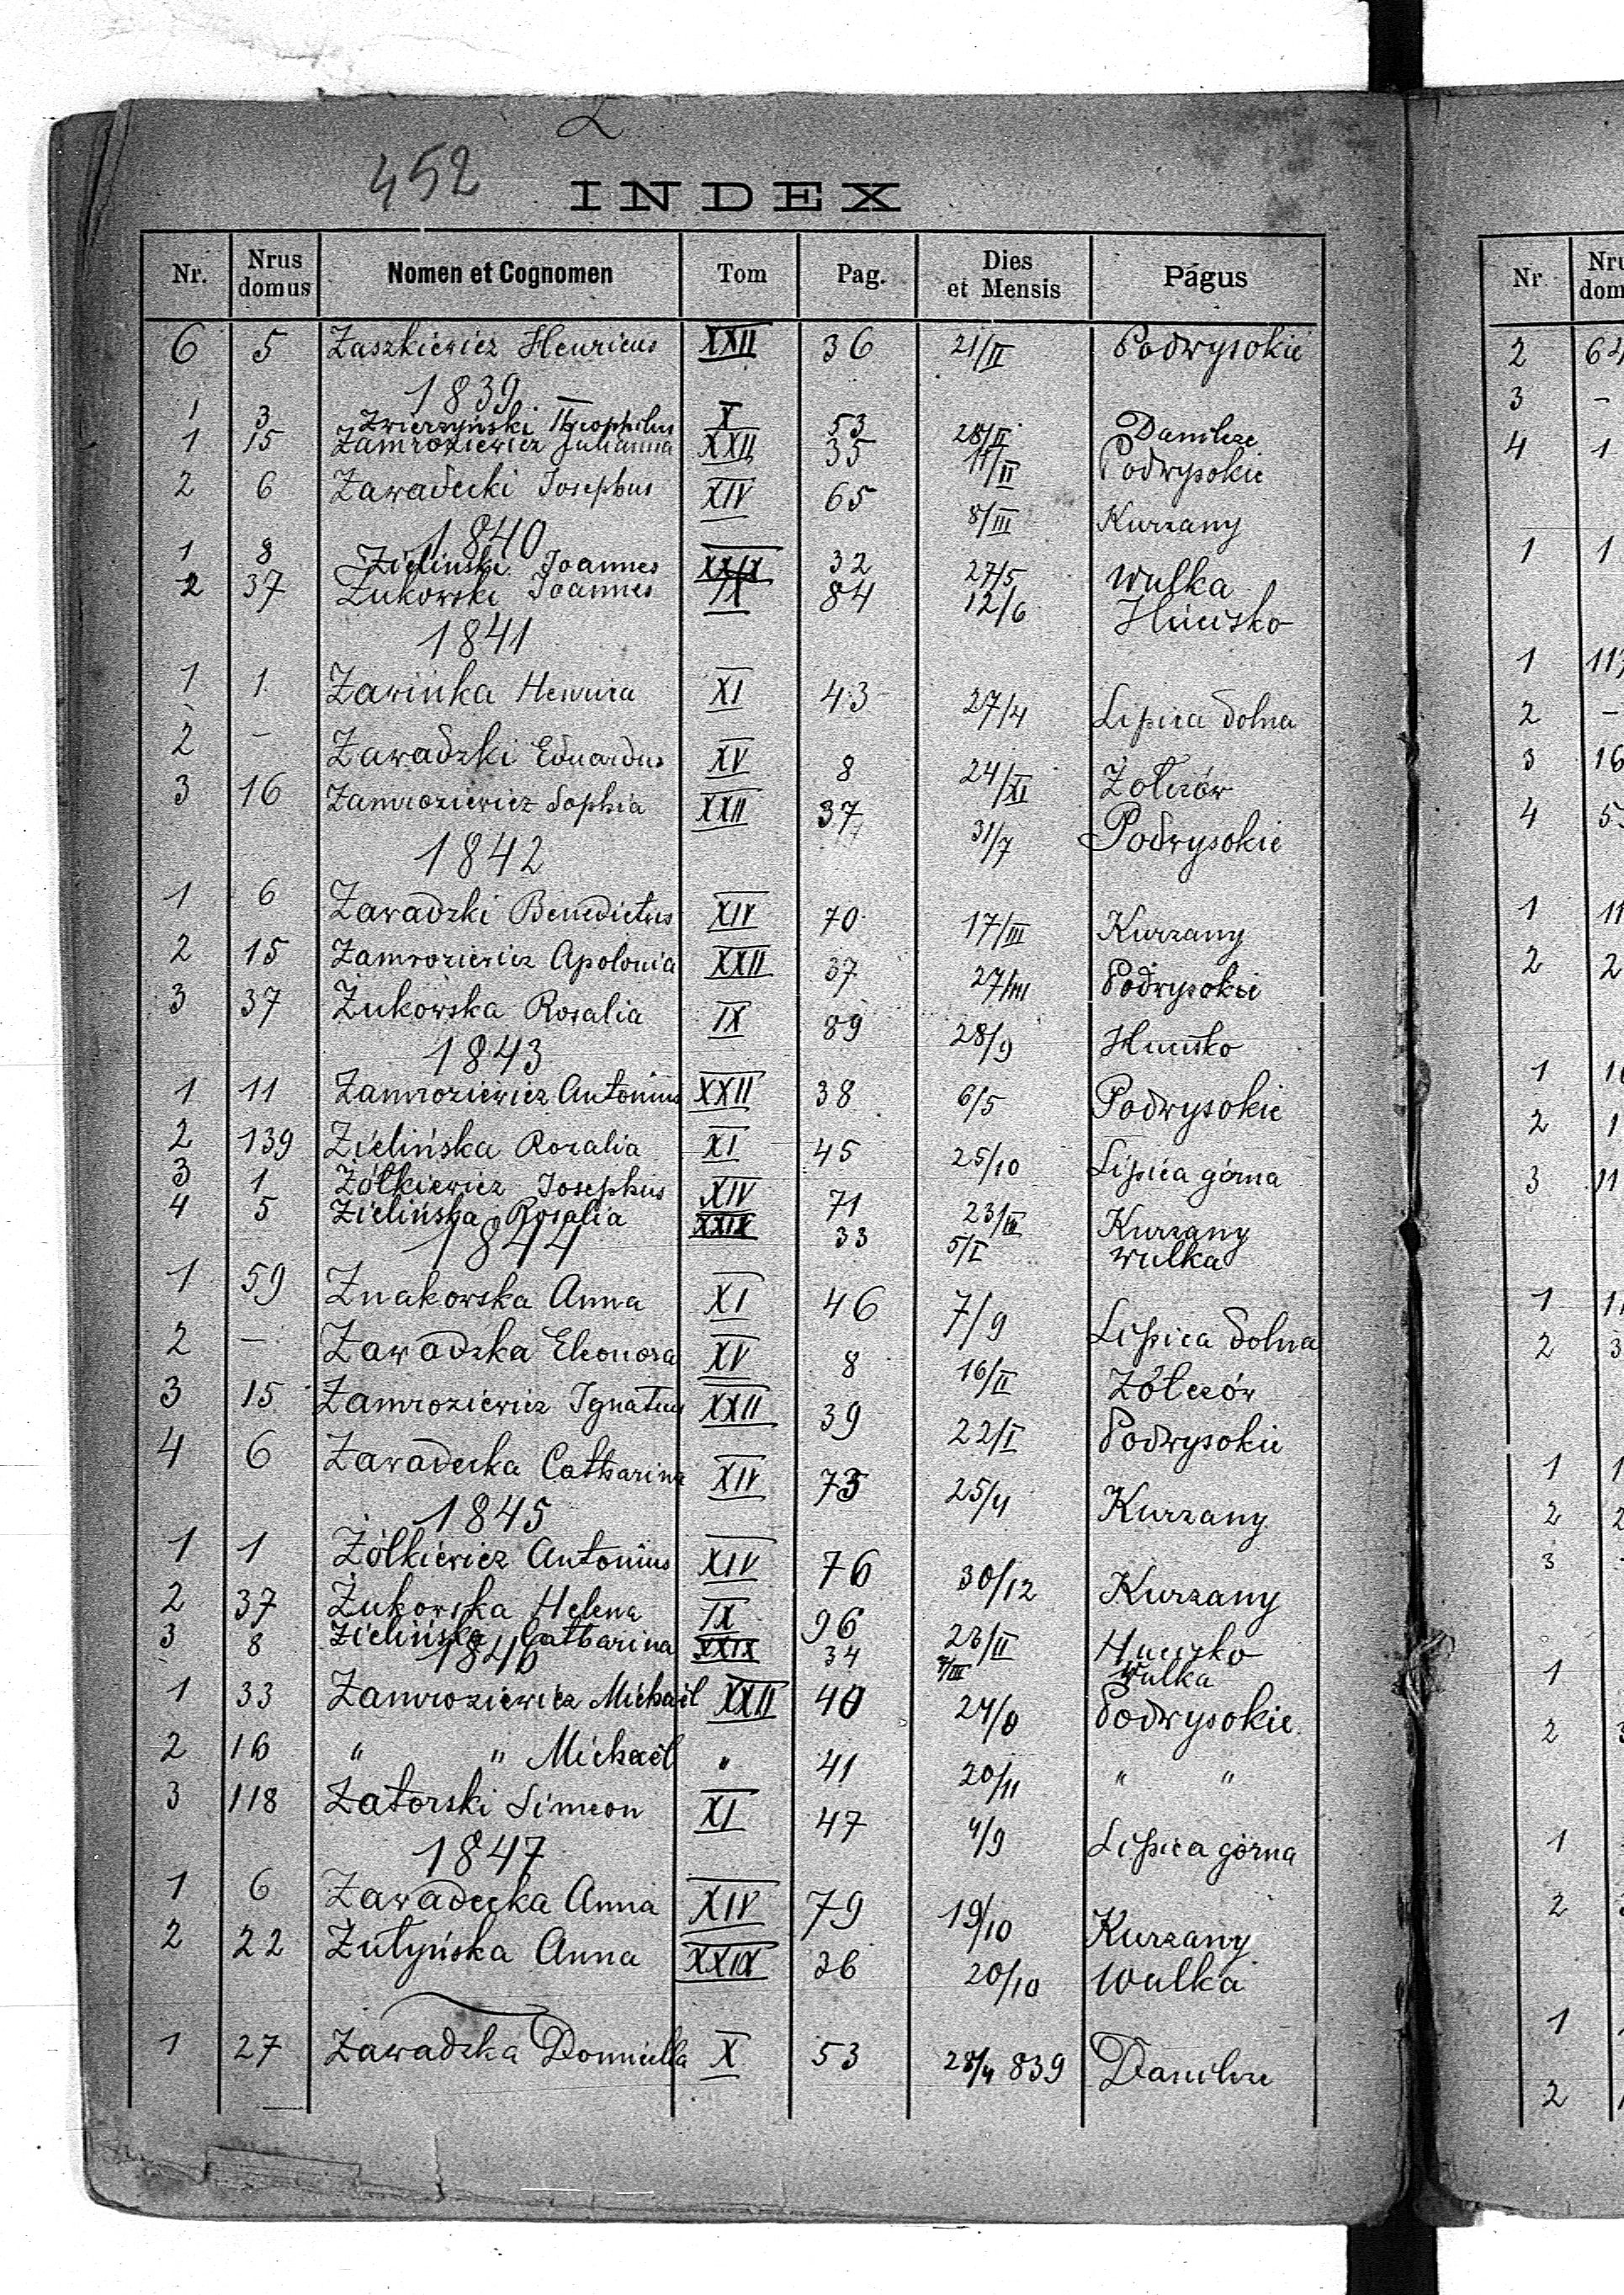 Z
452
INDEX
Nr. Nrus domus Nomen et Cognomen Tom Pag. Dies et Mensis Pagus
6 5 Zaszkiewicz Henricus XXII 36 21/II Podwysokie
1839
1 3 Zwierzyński Theophilus X 53 28/II Danilcze
1 15 Zamroziewicz Julianna XXII 35 11/II Podwysokie
2 6 Zawadecki Josephus XIV 65 8/III Kurzany
1840
1 8 Zielinski Joannes XXIX 32 27/5 Wulka
2 37 Żukowski Joannes IX 84 12/6 Hucisko
1841
1 1 Zawinka Henrica XI 43 27/4 Lipica dolna
2 - Zawadzki Eduardus XV 8 24/XI Żołczów
3 16 Zamroziewicz Sophia XXII 37 31/7 Podwysokie
1842
1 6 Zawadzki Benedictus XIV 70 17/III Kurzany
2 15 Zamroziewicz Apolonia XXII 37 27/III Podwysokie
3 37 Żukowska Rosalia IX 89 28/9 Hucisko
1843
1 11 Zamroziewicz Antonius XXII 38 6/5 Podwysokie
2 139 Zielińska Rozalia XI 45 25/10 Lipica górna
3 1 Żółkiewicz Josephus XIV 71 23/ Kurzany
4 5 Zielińska Rosalia XXIX 33 5/I Wulka
1844
1 59 Znakowska Anna XI 46 7/9 Lipica dolna
2 - Zawadzka Eleonora XV 8 16/II Żółczów
3 15 Zamroziewicz Ignatius XXII 39 22/I Podwysokie
4 6 Zawadecka Catharina XIV 73 25/4 Kurzany
1845
1 1 Żółkiewicz Antonius XIV 76 30/12 Kurzany
2 37 Żukowska Helena IX 96 23/II Huczko
3 8 Zielińska Catharina XXIX 34 7/III Wulka
1846
1 33 Zamroziewicz Michaël XXII 40 24/8 Podwysokie
2 16 " " Michaël " 41 20/11 " "
3 118 Zatorski Simeon XI 47 4/9 Lipica górna
1847
1 6 Zawadecka Anna XIV 79 19/10 Kurzany
2 22 Żutyńska Anna XXIX 36 20/10 Wulka
1 27 Zawadzka Domicella X 53 28/4 839 Danilcze
Nr
2
3 -
4 1
1 1
1
2 -
3 16
4
1 11
2 2
1
2 1
3 11
1
2 3
1 1
2
3
1
2
1
2
1
2